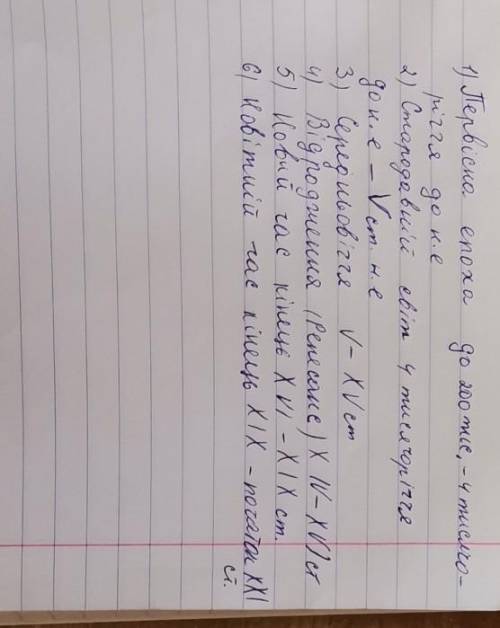 1) Первісна епоха до 200 тис, - 4 тисячо-
річчя до н.е
2) Стародавній світ 4 тисячоріччя
до н.е – V ст. н.е
3) Середньовіччя V – XV ст
4) Відродження (Ренесанс) XIV – XVI ст
5) Новий час кінець XVI – XIX ст.
6) Новітній час кінець XIX – початок XXI
ст.